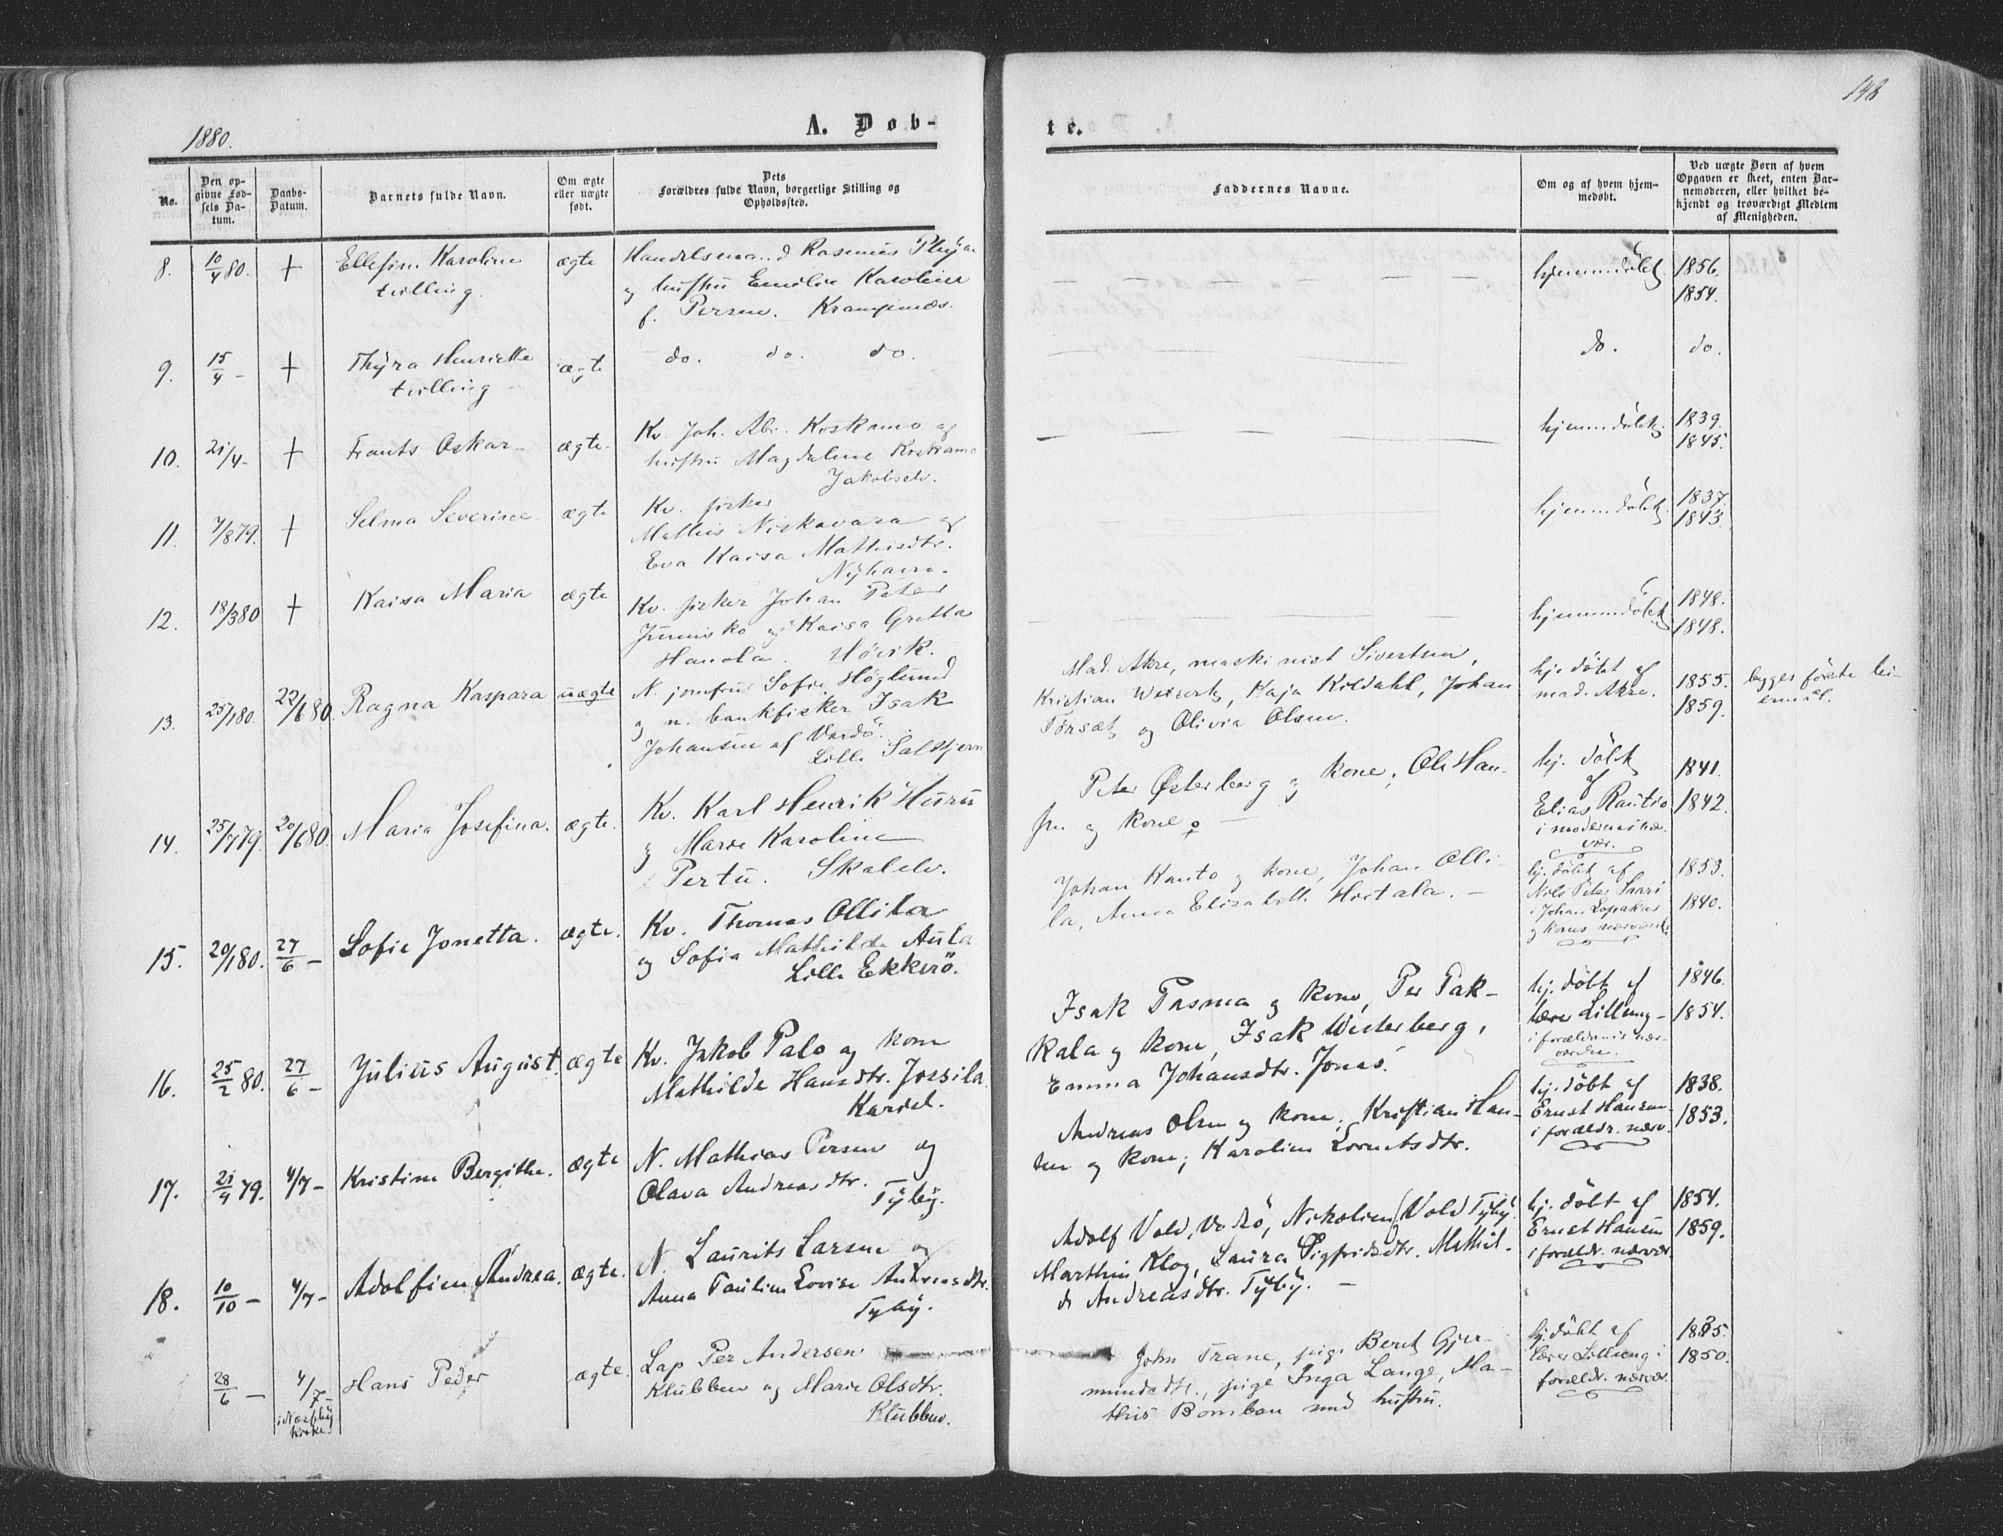 1880.
A. Døb-
te.
148
No.
Den op-
givne Fød-
sels Da-
tum.
Daabs-
Datum.
Barnets fulde Navn.
Om ægte
eller uægte
født.
Dets
Forældres fulde Navn, borgerlige Stilling og
Opholdssted.
Faddernes Navne.
Om og af hvem hjem-
medøbt.
Ved uægte Børn af hvem
Opgaven er skeet, enten Bar-
nemoderen, eller hvilket be-
kjendt og troværdigt Medlem
af Menigheden.
8. 10/4 80. + Ellefine Karoline ægte Handelsmand Rasmus
tvilling. og hustru Emilie Karoline
f. Persen. Krampenæs.
hjemmedøbt. 1856.
1854.
9. 15/4 - + Thÿra Henriette ægte do. do. do. do. do.
tvilling
10. 21/4- + Frants Oskar- ægte- Kv. Joh. Abr. Koskamo og
hustru Magdalene Koskamo
Jakobselv.
hjemmedøbt. 1839.
1845.
11. 7/8 79. + Selma Severine ægte Kv. fisker
Mathis Niskavara og
Eva Kaisa Mathisdtr.
Nÿhavn.
hjemmedøbt. 1837.
1843.
12. 18/3 80 + Kaisa Maria ægte Kv. fisker Johan Peter
Junnisko og Kaisa Gretta
Hanola. Høvik.
hjemmedøbt 1848.
1848.
13. 25/1 80. 22/6 80. Ragna Kaspara uægte N. jomfru Sofie Höglund
og n. bankfisker Isak
Johansen af Vardö.
Lille Saltstjern
Mad. Akre, maskinist Sivertsen,
Kristian, Kaja Kildahl, Johan
Torsæt og Olivia Olsen.
hj. döbt af
mad. Akre.
1855.
1859.
begges förste lei-
ermål.
14. 25/7 79. 20/6 80. Maria Josefina. ægte. Kv. Karl Henrik Huru
og Marie Karoline
Pertu. Skalelv.
Peter Østerberg og kone, Ole Han-
sen og kone
hj. döbt
af
Elias Rautio
i moderens nær-
vær.
1841.
1842.
15. 20/1 80. 27/6 - Sofie Jonetta. ægte. Kv. Thomas Ollila
og Sofia Mathilde Aula
Lille Ekkerö.
Johan Kanto og kone, Johan Olli-
la, Anna Elisabeth Hietala. -
hj. döbt af
Nils Peter Saari
i Johan Lapakus
og kones nærværelse
1853.
1840.
16. 25/2 80. 27/6 - Julius August. ægte Kv. Jakob Palo og kone
Mathilde Hansdtr. Jossila
Kardel.
Isak Pasma og kone, Per Pak-
kala og kone, Isak Westerberg,
Emma Johansdtr. Jonas.
hj. döbt af
lærer Lilleng-
i forældrenes nær-
værelse.
1846.
1854.
17. 21/4 79. 4/7 - Kristine Bergithe. ægte N. Mathias Persen og
Olava Andreasdtr.
Tÿbÿ.
Andreas Olsen og kone, Kristian Han-
sen og kone; Karoline Lorentsdtr.
hj. döbt af
Ernst Hansen
i forældr. nærv.
1838.
1853.
18. 10/10 - 4/7 - Adolfine Andrea. ægte. N. Laurits Larsen og
Anna Pauline Lovise Andreasdtr.
Tÿbÿ.
Adolf Vold, Vadsö, Nikoline Vold Tÿbÿ.
Marthin Klog, Laura Sigfridsdtr. Mathil-
de Andreasdtr. Tÿbÿ. -
hj. döbt af
Ernst Hansen
i forældr. nærvær.
1854.
1859.
28/6 - 4/7 - Hans Peder ægte. Lap Per Andersen
Klubben og Marie Olsdtr.
Klubben.
i Næsseby
kirke.
John Trane, pige Beret Gjer-
mundsdtr., pige Inga Lange, Ma-
this Bomban med hustru.
hj. döbt af
lærer Lilleng i
forældr. nærvær.
1850.